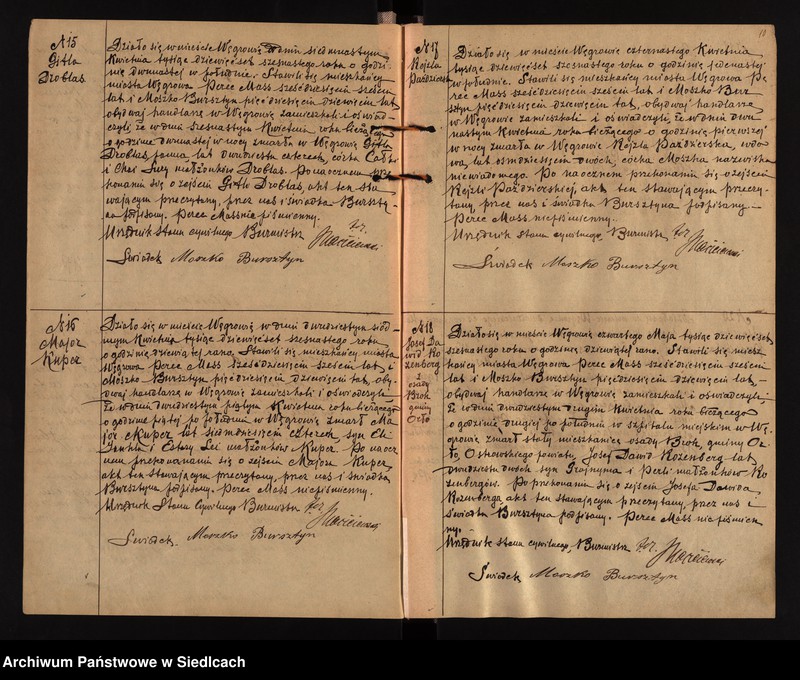 N15
Gitla
Droblas
Działo się w mieście Węgrowie w dniu siedmnastym
Kwietnia tysiąc dziewięćset szesnastego roku o godzi-
nie dwunastej w południe. Stawili się mieszkańcy
miasta Węgrowa Perec Mass sześćdziesięciu sześciu
lat i Moszko Bursztyn pięćdziesięciu dziewięciu lat
obydwaj handlarze w Węgrowie zamieszkali i oświad-
czyli, że w dniu szesnastym Kwietnia roku bieżącego
o godzinie dwunastej w nocy zmarła w Węgrowie Gitla
Droblas, panna lat dwudziestu czterech, córka
i Chai Sury małżonków Droblas. Po naocznem prze-
konaniu się o zejściu Gitli Droblas, akt ten sta-
wającym przeczytany, przez nas i świadka Burszty-
na podpisany. Perec Mass niepiśmienny.
Urzędnik Stanu cywilnego Burmistrz
Świadek Moszko Bursztyn
N16
Major
Kuper
Działo się w mieście Węgrowie w dniu dwudziestym siód-
mym Kwietnia tysiąc dziewięćset szesnastego roku
o godzinie dziewiątej rano. Stawili się mieszkańcy miasta
Węgrowa Perec Mass sześćdziesięciu sześciu lat i
Moszko Bursztyn pięćdziesięciu dziewięciu lat, oby-
dwaj handlarze w Węgrowie zamieszkali i oświadczyli
że w dniu dwudziestym piątym Kwietnia roku bieżącego
o godzinie piątej po południu w Węgrowie zmarł Ma-
jor Kuper lat siedmdziesięciu czterech, syn
i Estery Lei małżonków Kuper. Po naocz-
nem przekonaniu się o zejściu Majora Kuper,
akt ten stawającym przeczytany, przez nas i świadka
Bursztyna podpisany. Perec Mass niepiśmienny.
Urzędnik Stanu Cywilnego Burmistrz
Świadek Moszko Bursztyn
N17
Rojzla
Paździerska
10
Działo się w mieście Węgrowie czternastego Kwietnia
tysiąc dziewięćset szesnastego roku o godzinie jedenastej
w południe. Stawili się mieszkańcy miasta Węgrowa Pe-
rec Mass sześćdziesięciu sześciu lat i Moszko Bur-
sztyn pięćdziesięciu dziewięciu lat, obydwaj handlarze
w Węgrowie zamieszkali i oświadczyli, że w dniu dwu-
nastym Kwietnia roku bieżącego o godzinie pierwszej
w nocy zmarła w Węgrowie Rojzla Paździerska, wdo-
wa, lat osmdziesięciu dwóch, córka Moszka nazwiska
niewiadomego. Po naocznem przekonaniu się o zejściu
Rojzli Paździerskiej, akt ten stawającym przeczy-
tany, przez nas i świadka Bursztyna podpisany —
Perec Mass niepiśmienny.
Urzędnik Stanu cywilnego, Burmistrz
Świadek Moszko Bursztyn
N18
Josef Da-
wid Ro-
zenberg
z
osady
Brok
gminy
Orło
Działo się w mieście Węgrowie czwartego Maja tysiąc dziewięćset
szesnastego roku o godzinie dziewiątej rano. Stawili się miesz-
kańcy miasta Węgrowa Perec Mass sześćdziesięciu sześciu
lat i Moszko Bursztyn pięćdziesięciu dziewięciu lat, —
obydwaj handlarze w Węgrowie zamieszkali i oświadczyli,
że w dniu dwudziestym drugim Kwietnia roku bieżącego
o godzinie drugiej po południu w szpitalu miejskim w Wę-
growie zmarł stały mieszkaniec osady Brok, gminy Or-
ło, Ostrowskiego powiatu, Josef Dawid Rozenberg lat
dwudziestu dwóch, syn i Perli małżonków Ro-
zenbergów. Po przekonaniu się o zejściu Josefa Dawida
Rozenberga akt ten stawającym przeczytany, przez nas i
świadka Bursztyna podpisany. Perec Mass niepiśmien-
ny.
Urzędnik stanu cywilnego, Burmistrz
Świadek Moszko Bursztyn
Archiwum Państwowe w Siedlcach